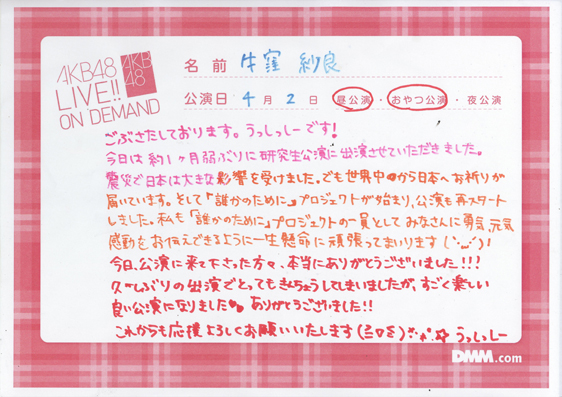 AKB48
LIVE!!
ON DEMAND
AKB
48
名前 牛窪 紗良
公演日 4月2日 昼公演・おやつ公演・夜公演
ごぶさたしております。うっしっしーです!
今日は約1ヶ月弱ぶりに研究生公演に出演させていただきました。
震災で日本は大きな影響を受けました。でも世界中から日本へお祈りが
届いています。そして「誰かのために」プロジェクトが始まり、公演も再スタート
しました。私も「誰かのために」プロジェクトの一員としてみなさんに勇気、元気
感動をお伝えできるように一生懸命に頑張ってまいります
今日、公演に来て下さった方々、本当にありがとうございました!!!
久しぶりの出演でとってもきんちょうしてしまいましたが、すごく楽しい
良い公演になりました♥ ありがとうございました!!
これからも応援よろしくお願いいたします うっしっしー
DMM.com